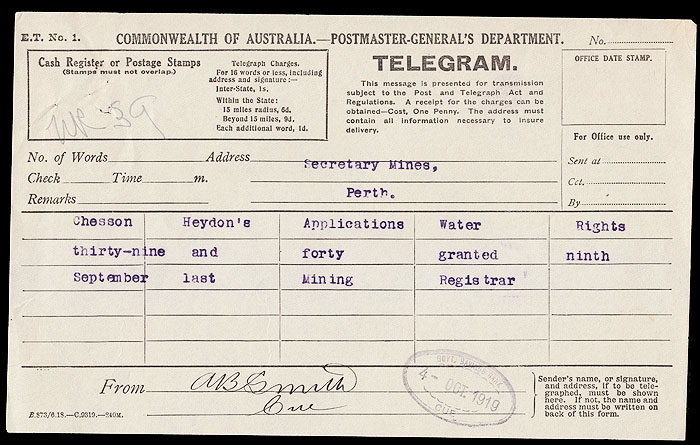 E.T. No. 1.
COMMONWEALTH OF AUSTRALIA.—POSTMASTER-GENERAL'S DEPARTMENT.
No.
Cash Register or Postage Stamps
(Stamps must not overlap.)
Telegraph Charges.
For 16 words or less, including
address and signature:—
Inter-State, 1s.
Within the State:
15 miles radius, 6d.
Beyond 15 miles, 9d.
Each additional word, 1d.
WR 39
TELEGRAM.
This message is presented for transmission
subject to the Post and Telegraph Act and
Regulations. A receipt for the charges can be
obtained—Cost, One Penny. The address must
contain all information necessary to insure
delivery.
OFFICE DATE STAMP.
For Office use only.
Sent at
Cct.
By
No. of Words Address Secretary Mines,
Check Time m.
Remarks Perth.
Chesson Heydon's Applications Water Rights
thirty-nine and forty granted ninth
September last Mining Registrar
From AB Smith
Cue
GOVT. SAVINGS BANK
4- OCT. 1919
CUE
Sender's name, or signature,
and address, if to be tele-
graphed, must be shown
here. If not, the name and
address must be written on
back of this form.
E.873/6.18.—C.9319.—240M.